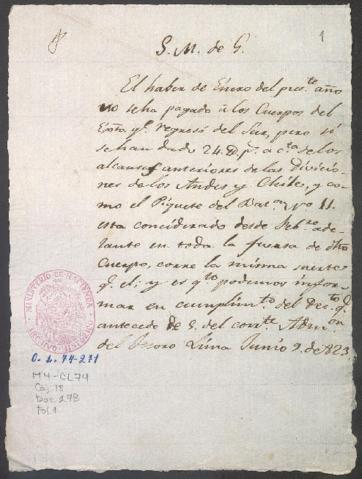 1
S. M. de G.
El haber de Enero del pres.te año
no se ha pagado à los Cuerpos del
Exto q.e regresó del Sur, pero sí
se han dado 24 D. p.r a cta de los
alcances anteriores de las Divicio-
nes de los Andes y Chile, y co-
mo el Piquete del Bat.on N.o 11.
esta considerado desde Feb.ro ade-
lante en toda la fuerza de dho
Cuerpo, corre la misma suerte
q.e el; y es q.to podemos infor-
mar en cumplim.to del Dec.to q.e
antecede de 5. del corr.te Adm.on
del Tesoro Lima Junio 9. de 823.
MINISTERIO DE HACIENDA
ARCHIVO HISTORICO
O. L. 74-271
M4-OL74
Caj. 18
Doc. 278
Fol. 1